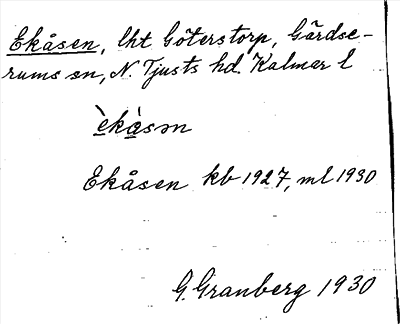 Ekåsen, lht Göterstorp, Gärdse-
rums sn, N. Tjusts hd. Kalmar l
èkàsən
Ekåsen kb 1927, ml 1930
G. Granberg 1930